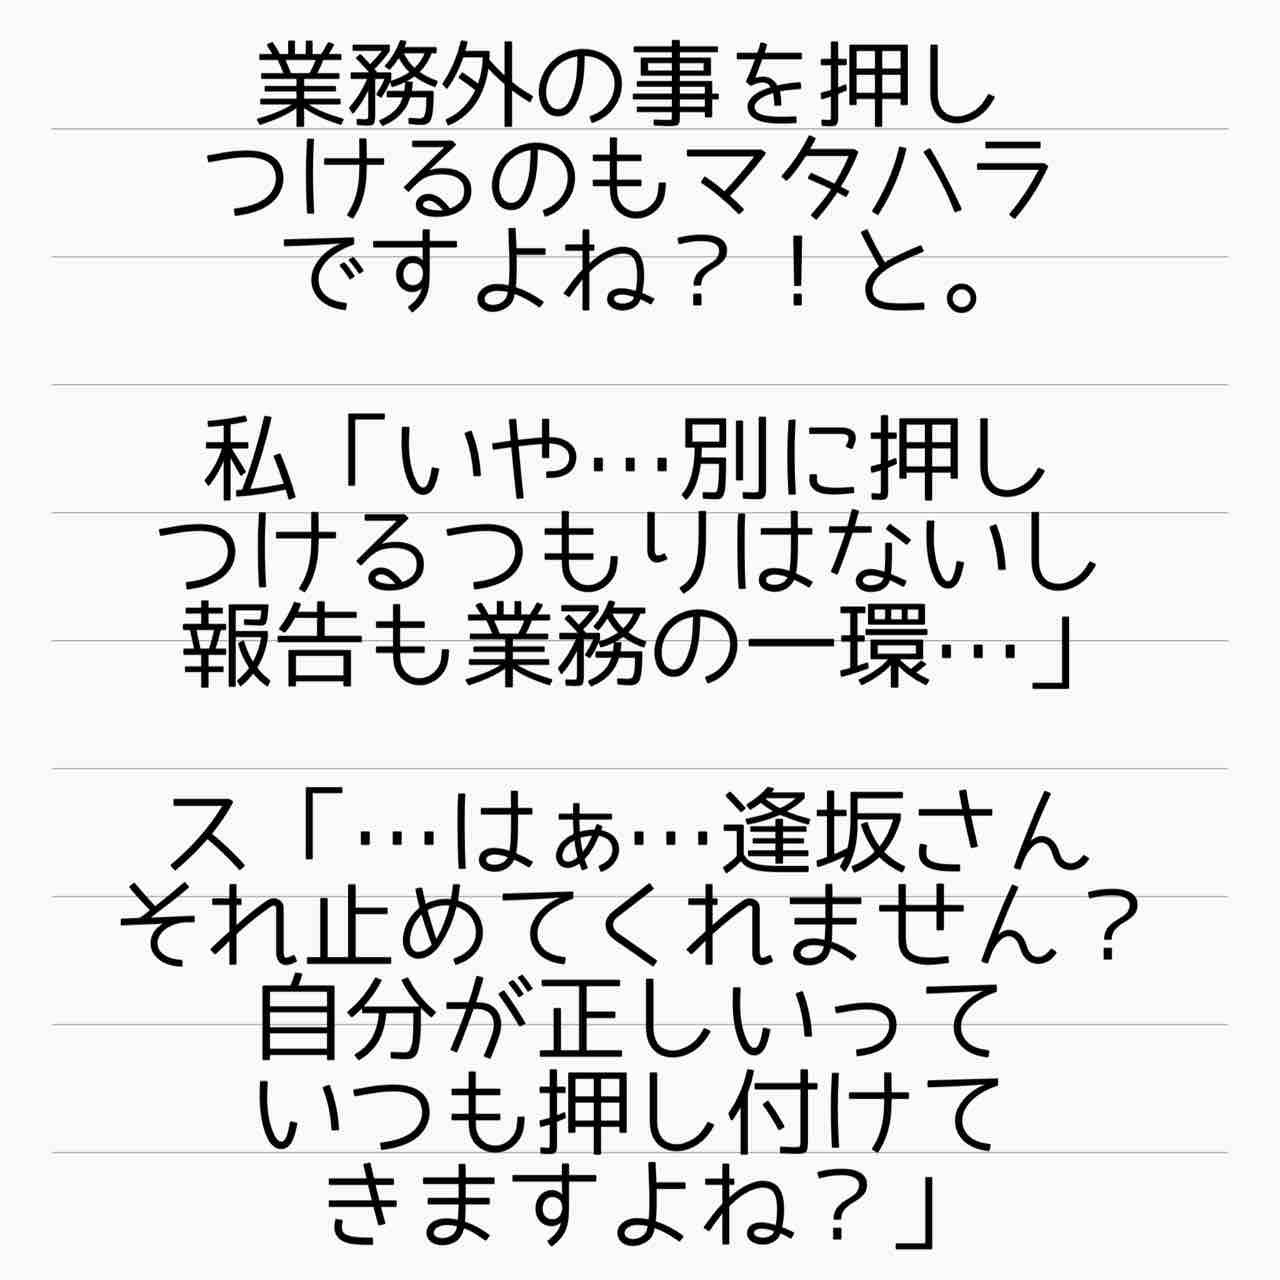 業務外の事を押し
つけるのもマタハラ
ですよね？！と。
私「いや…別に押し
つけるつもりはないし
報告も業務の一環…」
ス「…はぁ…逢坂さん
それ止めてくれません？
自分が正しいって
いつも押し付けて
きますよね？」